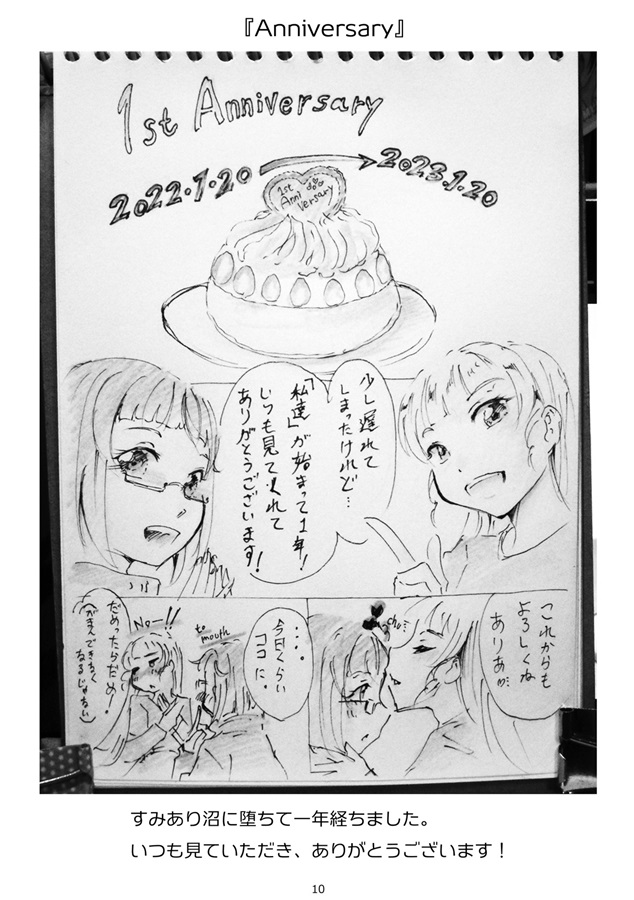 『Anniversary』
1st Anniversary
2022.1.20 → 2023.1.20
1st
Anni
versary
少し遅れて
しまったけれど…
「私達」が始まって1年!
いつも見てくれて
ありがとうございます!
これからも
よろしくね
ありあ…
chu
‥‥
今日くらい
ココに。
to
mouth
No—!!
だめったらだめー!
(がまんできなく
なるじゃない)
すみあり沼に堕ちて一年経ちました。
いつも見ていただき、ありがとうございます!
10